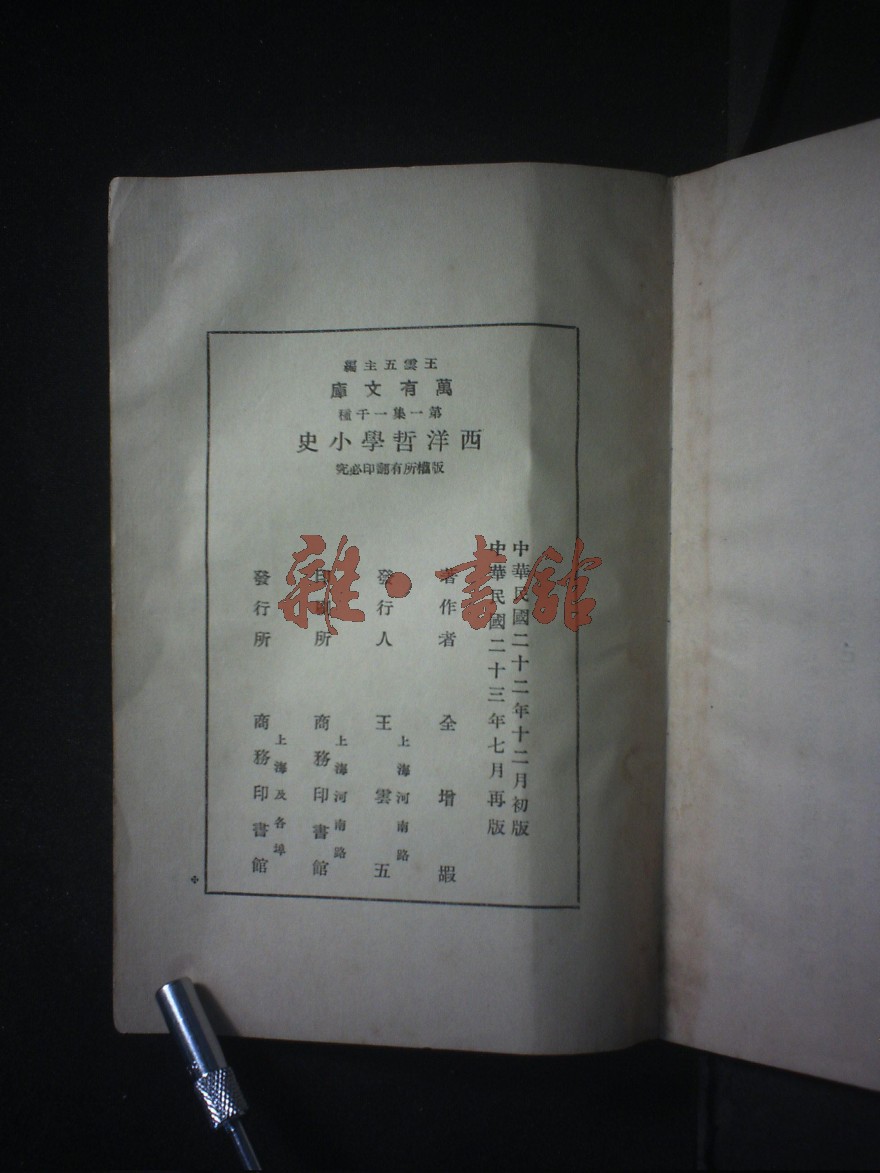 王雲五主編
萬有文庫
第一集一千種
西洋哲學小史
版權所有翻印必究
中華民國二十二年十二月初版
中華民國二十三年七月再版
著作者 全增嘏
上海河南路
發行人 王雲五
上海河南路
印刷所 商務印書館
上海及各埠
發行所 商務印書館
雜·書館